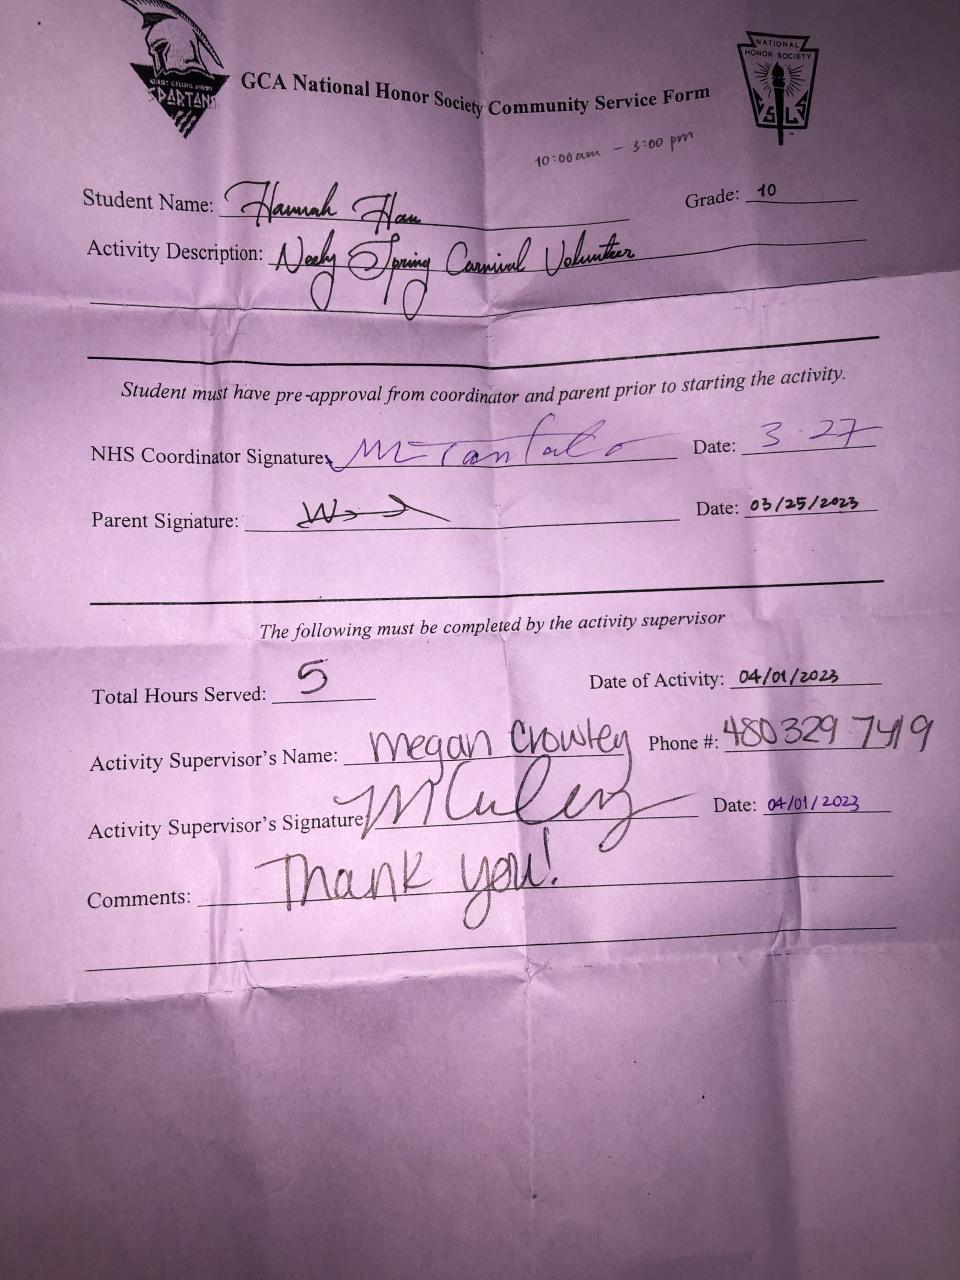 SPARTANS
NATIONAL
HONOR SOCIETY
S L S
GCA National Honor Society Community Service Form
10:00am - 3:00 pm
Student Name: Hannah Han
Grade: 10
Activity Description: Neely Spring Carnival Volunteer
Student must have pre-approval from coordinator and parent prior to starting the activity.
NHS Coordinator Signature:
Date: 3-27
Parent Signature:
Date: 03/25/2023
The following must be completed by the activity supervisor
Total Hours Served: 5
Date of Activity: 04/01/2023
Activity Supervisor's Name: Megan Crowley
Phone #: 480 329 7419
Activity Supervisor's Signature
Date: 04/01/2023
Comments: Thank you!